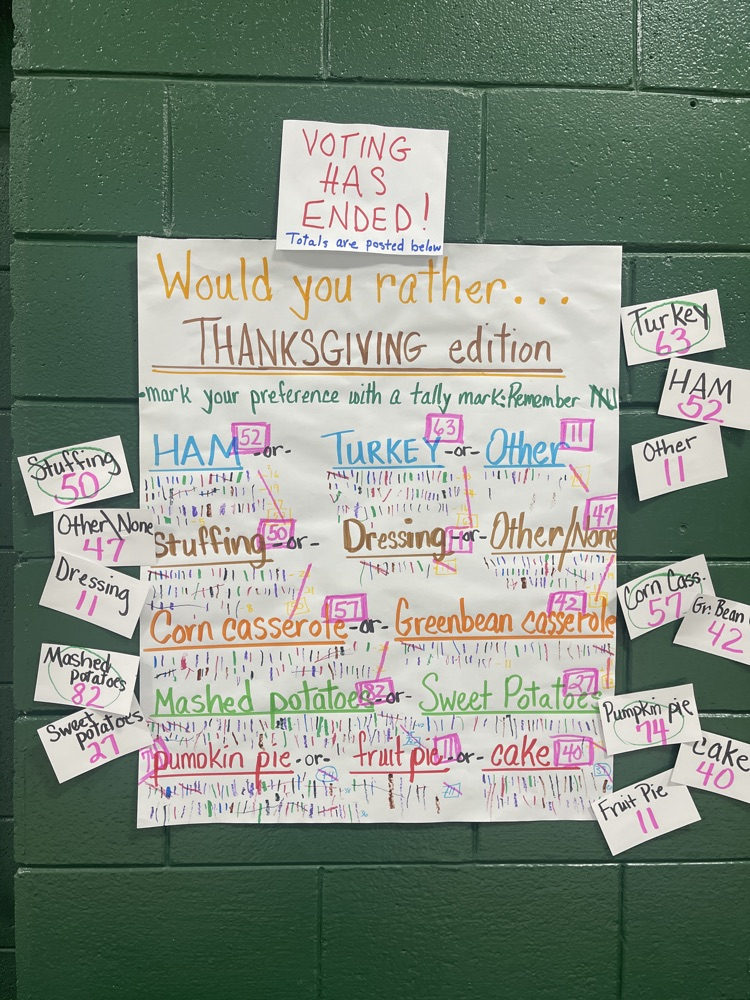 VOTING
HAS
ENDED!
Totals are posted below
Would you rather...
THANKSGIVING edition
-mark your preference with a tally mark: Remember
HAM 52 -or- TURKEY 63 -or- Other 11
Stuffing 50 -or- Dressing -or- Other/None 47
Corn casserole 57 -or- Greenbean casserole 42
Mashed potatoes 82 -or- Sweet Potatoes 27
pumpkin pie -or- fruit pie 11 -or- cake 40
Stuffing
50
Other/None
47
Dressing
11
Mashed
potatoes
82
Sweet
potatoes
27
Turkey
63
HAM
52
Other
11
Corn Cass.
57
Gr. Bean
42
Pumpkin pie
74
Cake
40
Fruit Pie
11